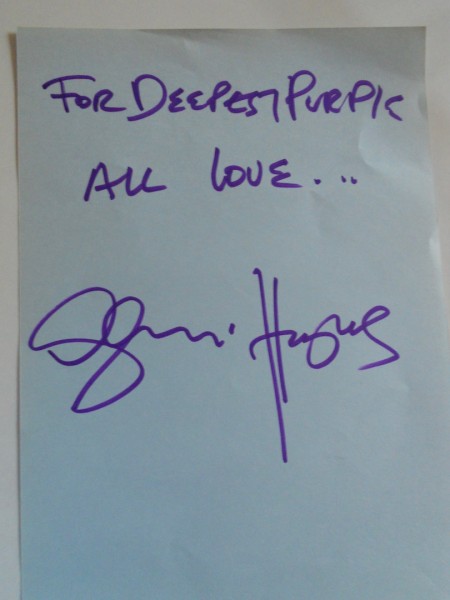 FOR DEEPEST PURPLE
ALL LOVE...
Glenn Hughes